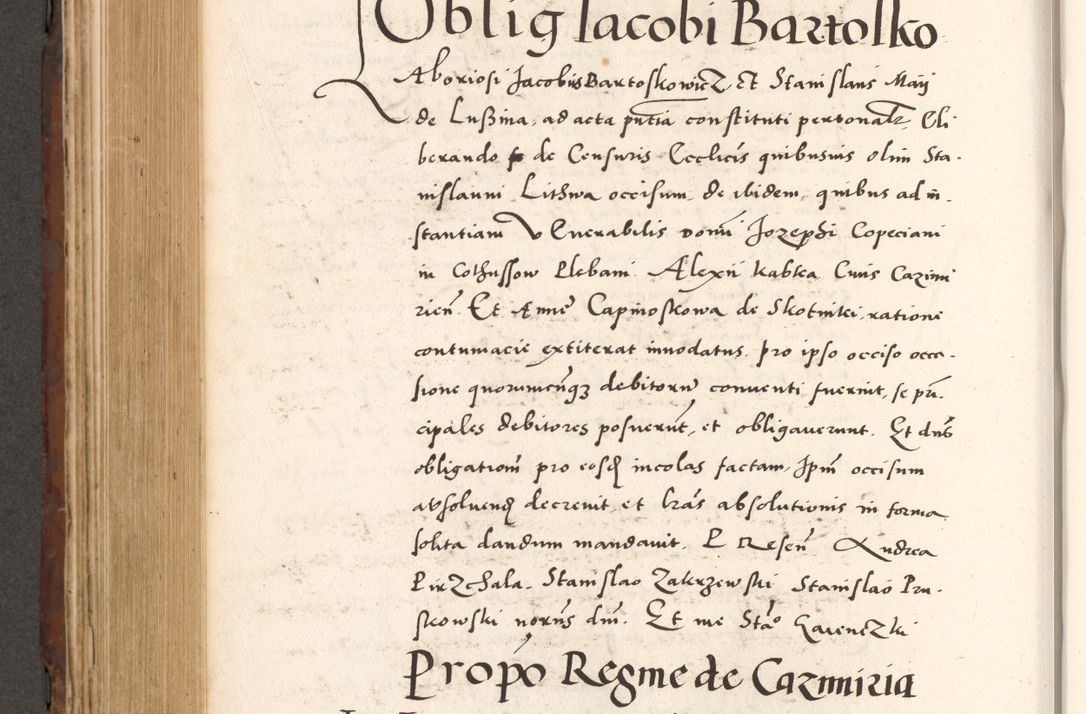 Oblig Iacobi Bartosko
Aboriosi Jacobus Bartoskowicz, et Stanislaus Maii
de Lußina, ad acta pntia constituti personalr, Eli
berando de Censuris Ecclicis quibusuis olim Sta-
nislaum Lithwa occisum, de ibidem, quibus ad in
stantiam Venerabilis domi Jozephi Copeciani
in Cothussow Plebani Alexii kabka Ciuis Cazimi
rien. Et Anne Capinoskowa de Skotniki, ratione
contumacie extiterat innodatus, pro ipso occiso occa-
sione quorumcunqz debitorum conuenti fuerint, se prin
cipales debitores posuerunt, et obligauerunt. Et dns
obligationi pro eosd incolas factam, Ipm occisum
absoluend decreuit, et lras absolutionis in forma
solita dandum mandauit. P Resen Andrea
Pirzchala, Stanislao Zakrzewski Stanislao Pru-
skowski norus dni. Et me Stao Gauenczki
Propo Regine de Cazmiria